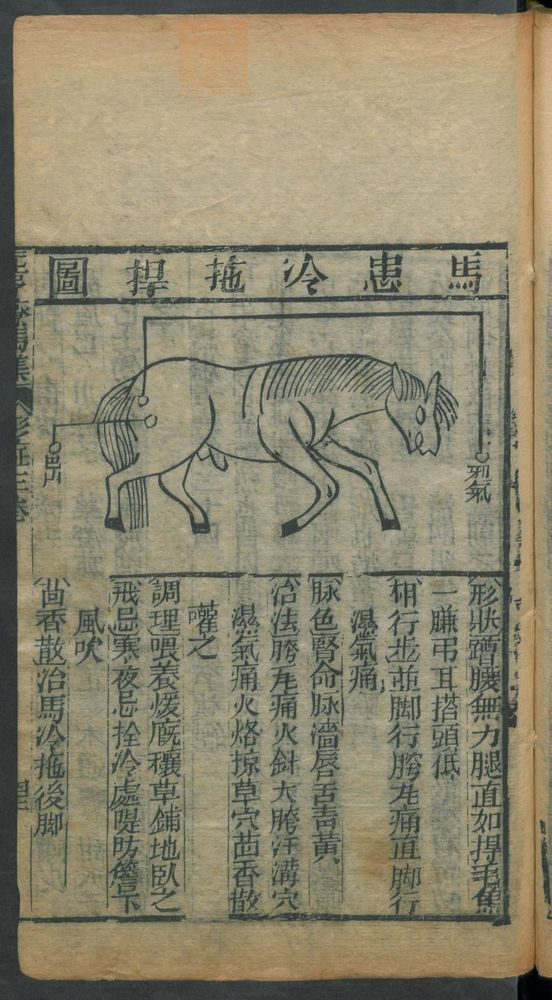 馬患冷拖捍圖
邪氣
巴山
形狀蹲腰無力腿直如捍毛焦
一膁弔耳搭頭低
相行步並脚行胯尢痛直脚行
濕氣痛
脉色腎命脉濇唇舌青黃
治法胯尢痛火針大胯汗溝穴
濕氣痛火烙掠草穴茴香散
嚾之
調理喂養煖廐穰草鋪地臥之
戒忌寒夜忌拴冷處隄防簷下
風吹
茴香散治馬冷拖後脚
元亨療馬集
卷